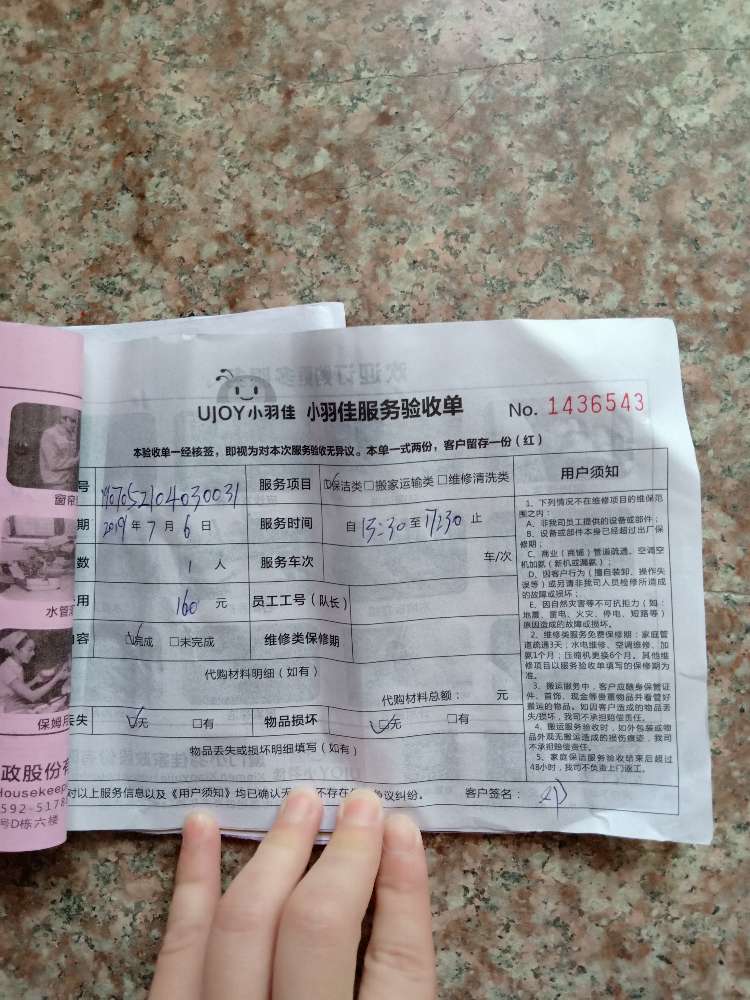 UJOY小羽佳 小羽佳服务验收单 No. 1436543
本验收单一经核签，即视为对本次服务验收无异议。本单一式两份，客户留存一份（红）
号 服务项目 ☑保洁类□搬家运输类□维修清洗类 用户须知
期 2019年7月6日 服务时间 自 13:30 至 17:30 止
数 1 人 服务车次 车/次
用 160 元 员工工号（队长）
容 ☑完成 □未完成 维修类保修期
代购材料明细（如有）
代购材料总额： 元
丢失 ☑无 □有 物品损坏 ☑无 □有
物品丢失或损坏明细填写（如有）
对以上服务信息以及《用户须知》均已确认无 不存在 争议纠纷。 客户签名：
1、下列情况不在维修项目的维保范
围之内：
A、非我司员工提供的设备或部件；
B、设备或部件本身已经超过出厂保
修期；
C、商业（商铺）管道疏通、空调空
机加氨（新机或漏氨）；
D、因客户行为（擅自装卸、操作失
误等）或另请非我司人员检修所造成
的故障或损坏；
E、因自然灾害等不可抗拒力（如：
地震、雷电、火灾、停电、短路等）
原因造成的故障或损坏。
2、维修类服务免费保修期：家庭管
道疏通3天；水电维修、空调维修、加
氨1个月；压缩机更换6个月。其他维
修项目以服务验收单填写的保修期为
准。
3、搬运服务中，客户应随身保管证
件、首饰、现金等贵重物品并看管好
搬运的物品。如因客户造成的物品丢
失/损坏，我司不承担赔偿责任。
4、搬运服务验收时，如外包装或物
品外观无搬运造成的损伤痕迹，我司
不承担赔偿责任。
5、家庭保洁服务验收结束后超过
48小时，我司不负责上门返工。
窗帘
水管
保姆月
政股份有
Housekeep
592-5178
号D栋六楼